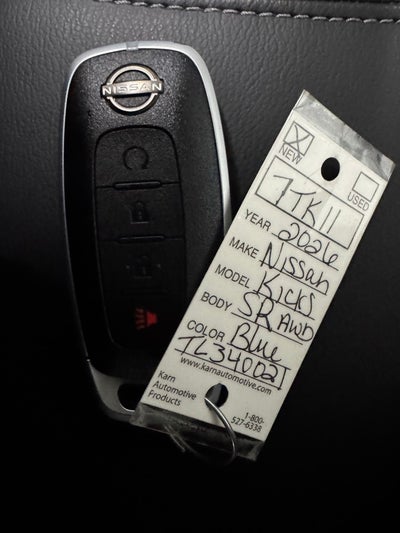 NISSAN
NEW
USED
7TK11
YEAR 2026
MAKE Nissan
MODEL Kicks
BODY SR AWD
COLOR Blue
TL340021
www.karnautomotive.com
Karn
Automotive
Products
1-800-
527-6338